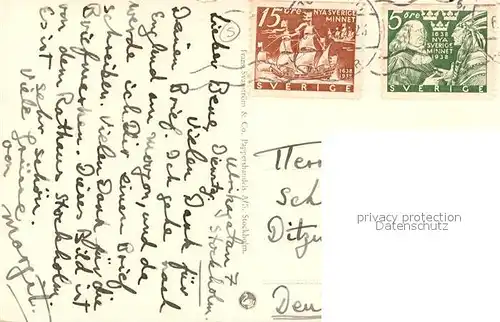 Ulrikagatan 7
Dienstag, Stockholm.
Lieber Benez,
Vielen Dank für
Deinen Brief. Ich gehe nach
England am morgen, und da
werde ich Dir einen Brief
schreiben. Vielen Dank für die
Briefmarken. Dieses Bild ist
von dem Rathaus Stockholm.
Es ist sehr schön.
Viele Grüsse
von
Margit.
Frans Svanström & Co. Pappershandels A/B. Stockholm.
15 ÖRE
NYA SVERIGE
MINNET
1638
1938
SVERIGE
5 ÖRE
1638
NYA
SVERIGE
MINNET
1938
SVERIGE
Herr
Sch
Ditzu
Deu
privacy protection
Datenschutz